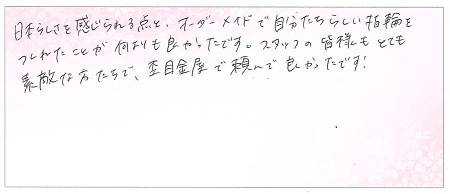 日本らしさを感じられる点と、オーダーメイドで自分たちらしい指輪を
つくれたことが何よりも良かったです。スタッフの皆様もとても
素敵な方たちで、杢目金屋で頼んで良かったです!